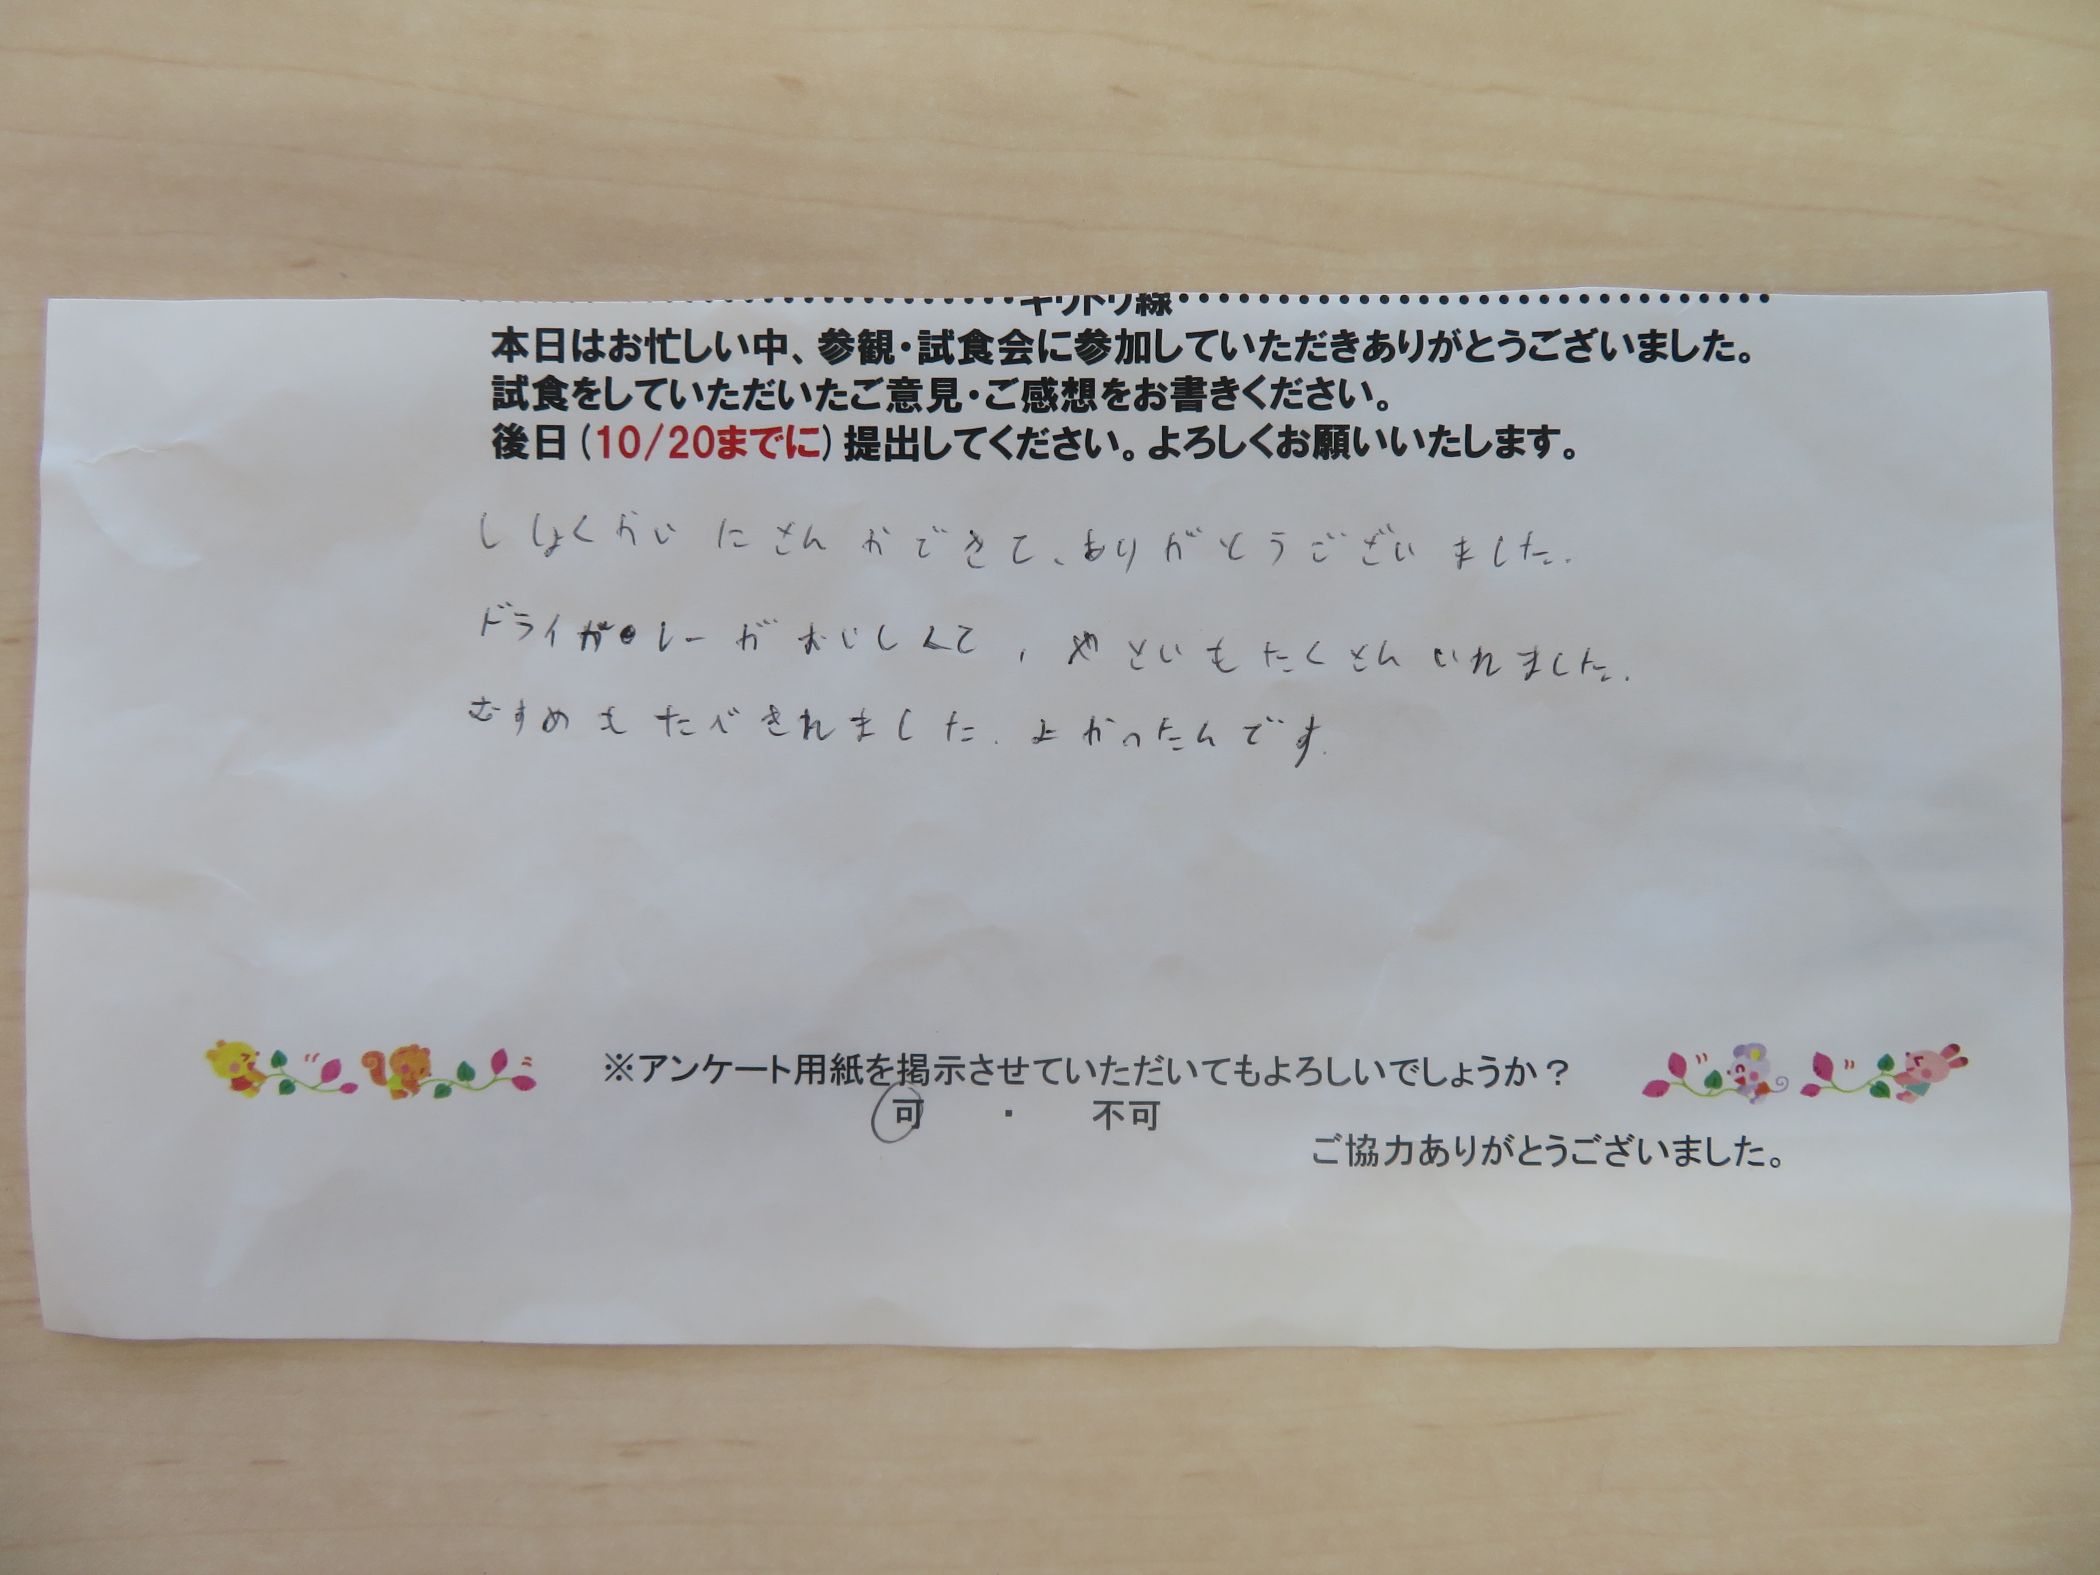 キリトリ線
本日はお忙しい中、参観・試食会に参加していただきありがとうございました。
試食をしていただいたご意見・ご感想をお書きください。
後日(10/20までに)提出してください。よろしくお願いいたします。
ししょくかいにさんかできて、ありがとうございました.
ドライガレーがおいしくて,やさいもたくさんいれました.
むすめもたべきれました.よかったんです.
※アンケート用紙を掲示させていただいてもよろしいでしょうか？
可 ・ 不可
ご協力ありがとうございました。